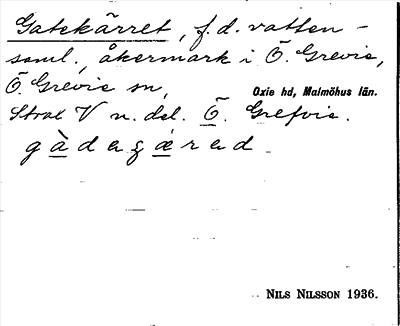 Gatekärret, f.d. vatten-
saml., åkermark i Ö. Grevie,
Ö. Grevie sn, Oxie hd, Malmöhus län.
Strax V n. del. Ö. Grefvie.
gàdagærad
NILS NILSSON 1936.